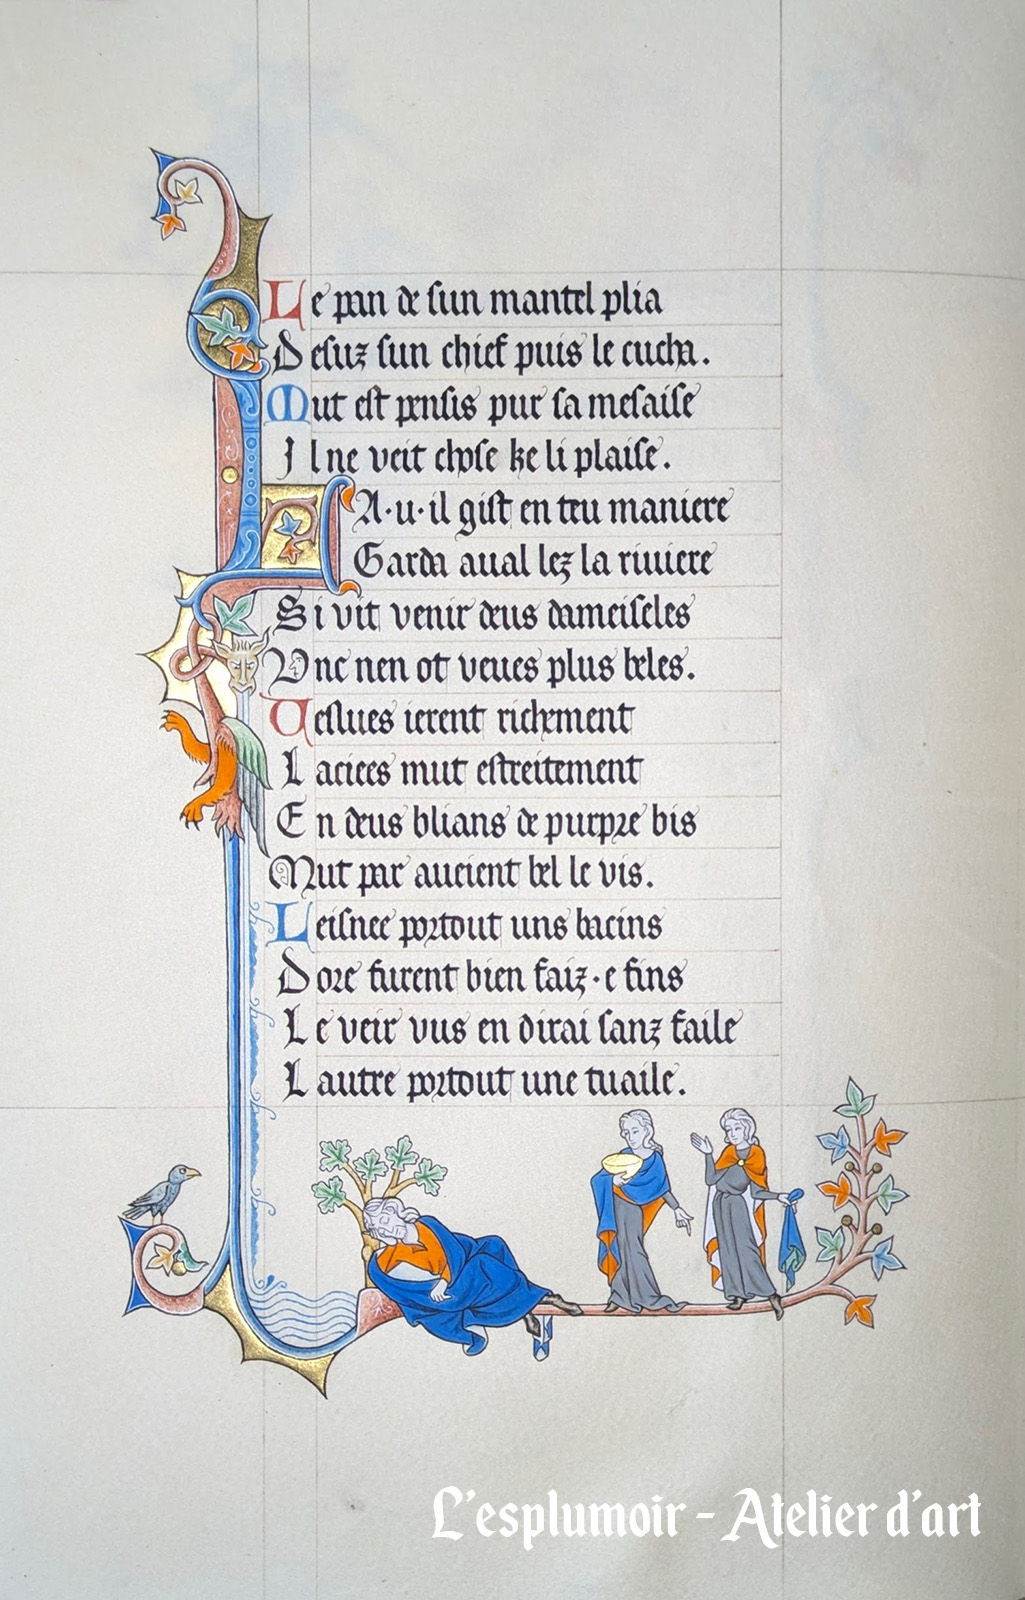 Le pan de sun mantel plia
Desuz sun chief puis le cucha.
Mut est pensis pur sa mesaise
Il ne veit chose ke li plaise.
La·u·il gist en teu maniere
Garda aual lez la riuiere
Si vit venir deus dameiseles
Unc nen ot veues plus beles.
Vestues ierent richement
Laciees mut estreitement
En deus blians de purpre bis
Mut par aueient bel le vis.
Leisnee portout uns bacins
Dore furent bien faiz·e fins
Le veir vus en dirai sanz faile
Lautre portout une tuaile.
L'esplumoir - Atelier d'art